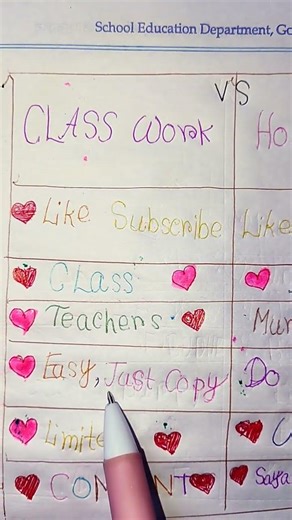 School Education Department, Go
VS
CLASS Work Ho
Like Subscribe Like
CLass
Teachers Mur
Easy, Just Copy Do
Limite
CON NT Saya